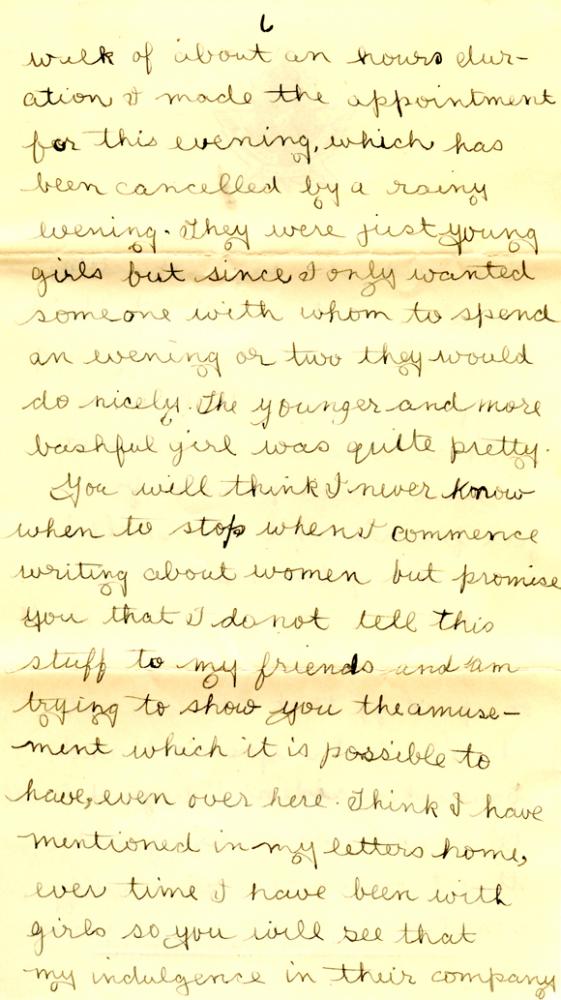 6
walk of about an hours dur-
ation I made the appointment
for this evening, which has
been cancelled by a rainy
evening. They were just young
girls but since I only wanted
someone with whom to spend
an evening or two they would
do nicely. The younger and more
bashful girl was quite pretty.
You will think I never know
when to stop when I commence
writing about women but promise
you that I do not tell this
stuff to my friends and am
trying to show you the amuse-
ment which it is possible to
have, even over here. Think I have
mentioned in my letters home,
ever time I have been with
girls so you will see that
my indulgence in their company